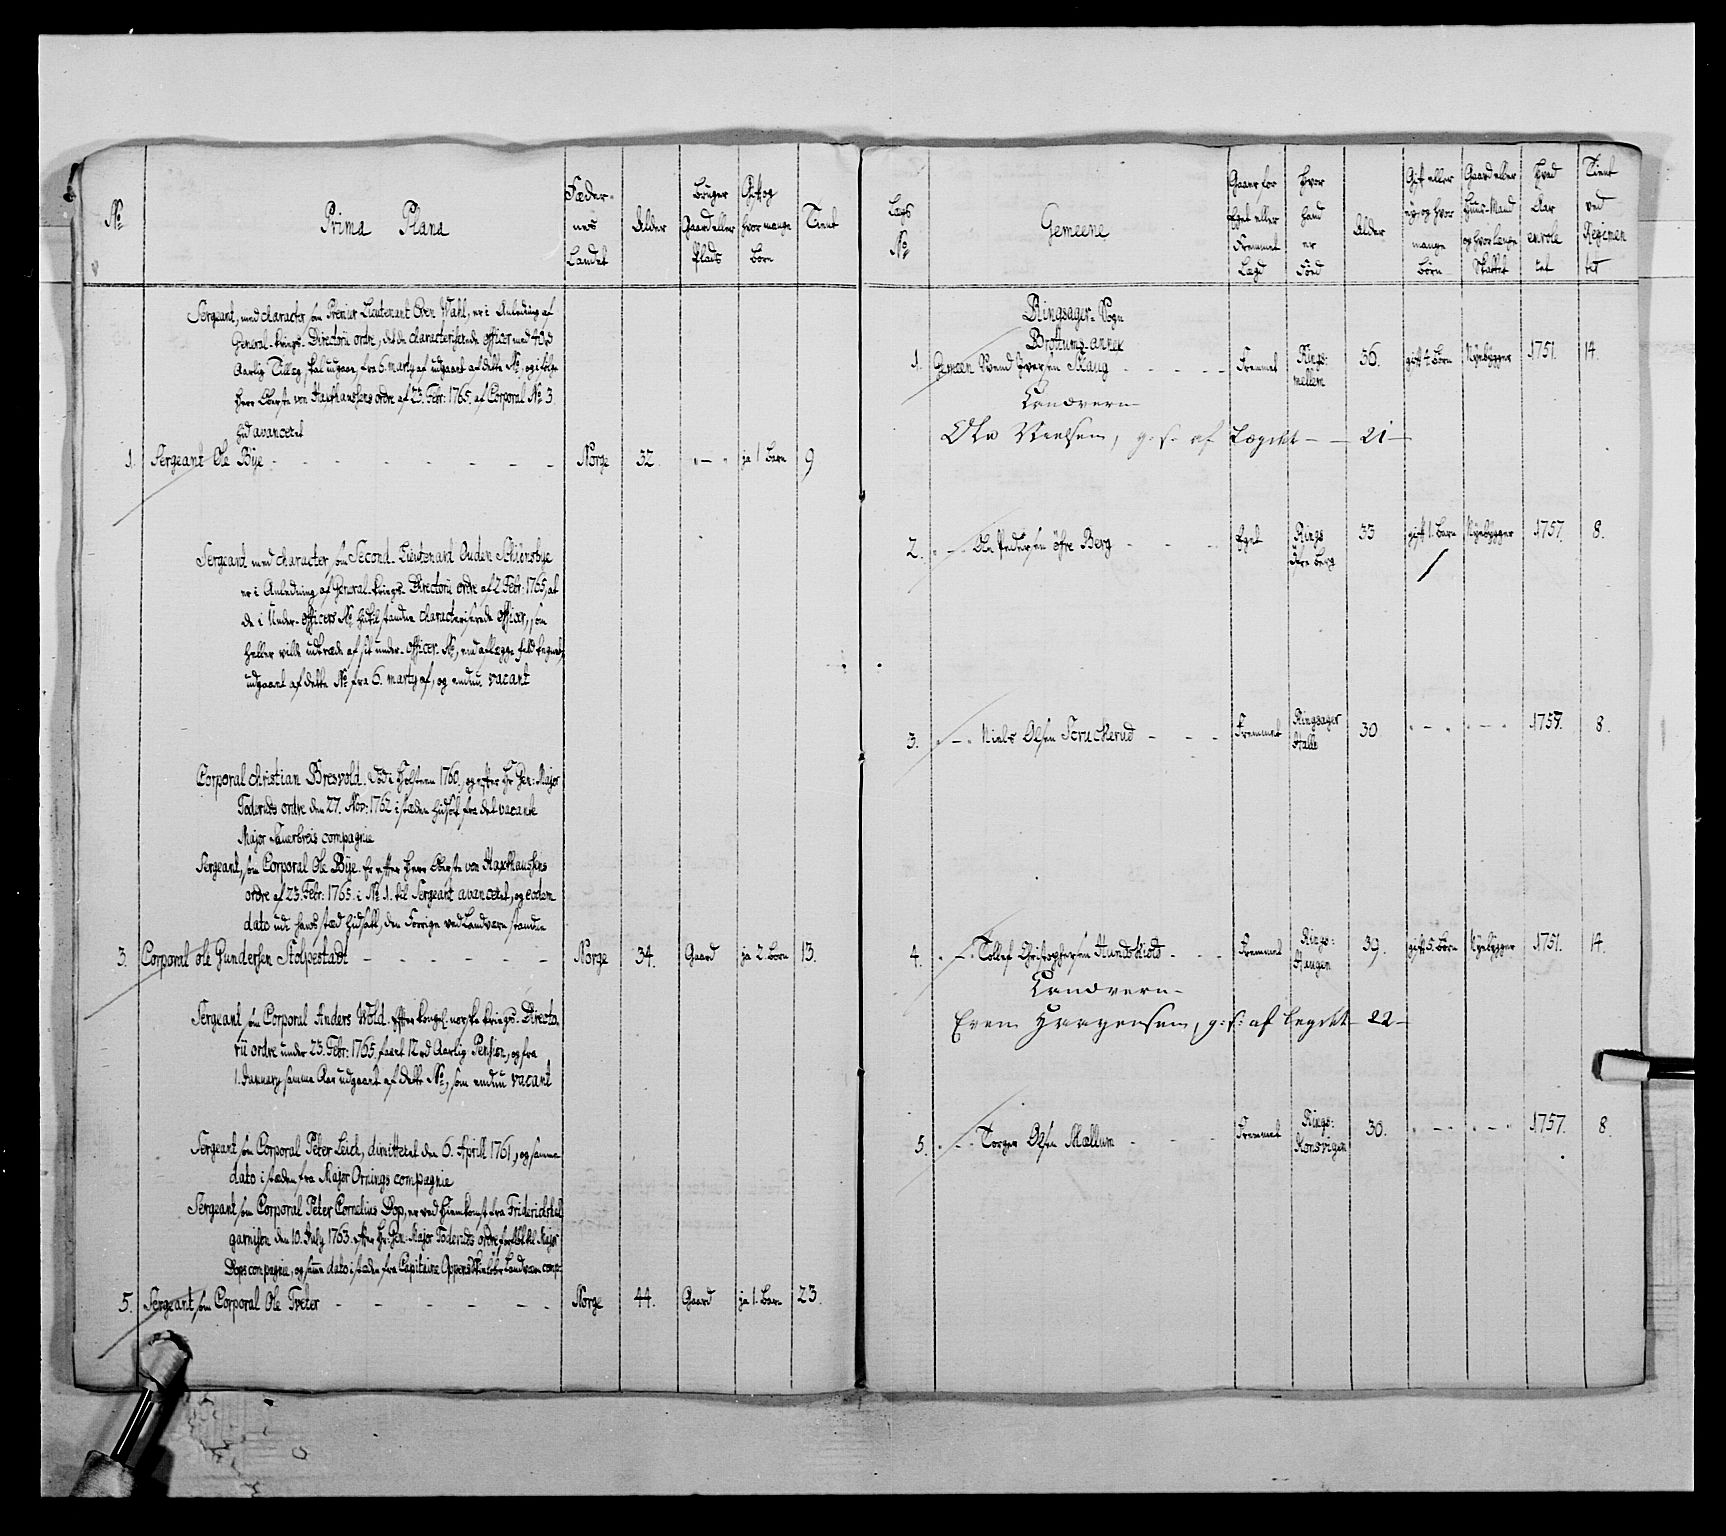 No
Prima Plana
Fæder-
nes
Landet
Alder
Bruger
Gaard eller
Plads
Gift og
hvor mange
Børn
Tient
Sergeant, med character som Premier Lieutenant Even Wahl, er i Anledning af
General-Krigs-Directorii ordre, at de characteriserede officer med
Aarlig Tillæg skal udgaae, fra 6. marty af udgaaet af dette No, og ifølge
Herr Oberste von Haxthausens ordre af 23. Febr: 1765. af Corporal No 3.
hid avanceret
1. Sergeant Ole Bye - - - - - - - Norge 32. " - " ja 1 Barn 9
Sergeant med character som Second-Lieutenant Ouden Schiensbye
er i Anledning af General-Krigs-Directorii ordre af 2 Febr: 1765, at
de i Under-officers No hidtil standne characteriserede officer, som
heller vilde udtræde af sit under-officer-No, end aflægge
udgaaet af dette No fra 6. marty af, og endnu vacant
Corporal Christian Bresvold. Død i Holsteen 1760, og efter Hr Gen: Major
Foderods ordre den 27. Nov: 1762 i stæden hidsat fra det vacante
Major compagnie
Sergeant, som Corporal Ole Bye. Er efter Herr Oberste von Haxthausens
ordre af 23. Febr: 1765. i No 1. til Sergeant avanceret, og eodem
dato udi hans stæd hidsatt, den Forrige ved Landværn standne
3. Corporal Ole Gundersen Stolpestadt - - - - - - Norge 34. Gaard ja 2. Børn 13.
Sergeant som Corporal Anders Wold. Efter Kongel. norske Kriegs-Directo-
rii ordre under 23. Febr: 1765. faaet 12 rd Aarlig Pension, og fra
1. January samme Aar udgaaet af dette No, som endnu vacant
Sergeant som Corporal Peter Leich, dimitteret den 6. Aprill 1761, og samme
dato i stæden fra Major Ornings compagnie
Sergeant som Corporal Peter Cornelius Dop, er ved Hiemkomst fra Friderichstad
garnison den 10. July 1763. efter Hr. Gen: Major Foderods ordre til Major
Dops compagnie, og samme dato i stæden fra Capitaine Landværn comp:
5. Sergeant som Corporal Ole Tveter - - - - - - Norge 44. Gaard ja 1. Barn 23.
Lægs
No
Gemeene
Gaaer for
Eget eller
Fremmet
Lægd
Hvor
hand
er
Fød
Alder
Gift eller
ey, og hvor
mange
Børn
Gaard eller
Huus-Mand
og hvor længe
Skattet
Hvad
Aar
enrole
ret
Tient
ved
Regimen
tet
Ringsager-Sogn
Brottums-annex
1. Gemeen Svend Iversen Skaug - - - - - Fremmet Rings: mellem 36. gift 4 Børn Nyebygger 1751. 14.
Landvern
Ole Nielsen, g. s. af Lægdet - - 21 -
2. " - " Ole Pedersen öfre Berg - - - Eget Rings öfre berg 33 gift 1. Barn Nyebygger 1757. 8.
3. " - " Niels Olsen Scruckerud - - - Fremmet Ringsager Stalle 30 " - " " - " 1757. 8.
4. " - " Tollef Christophersen Hundskiold - - - Fremmet Rings: Haugen 39. gift 5. Børn Nyebygger 1751. 14.
Landvern
Even Haagensen, g: s: af Legdet - 22 -
5. " - " Torger Olsen Mællum - - - - Fremmet Rings: Konsvigen 30. " - " " - " 1757. 8.